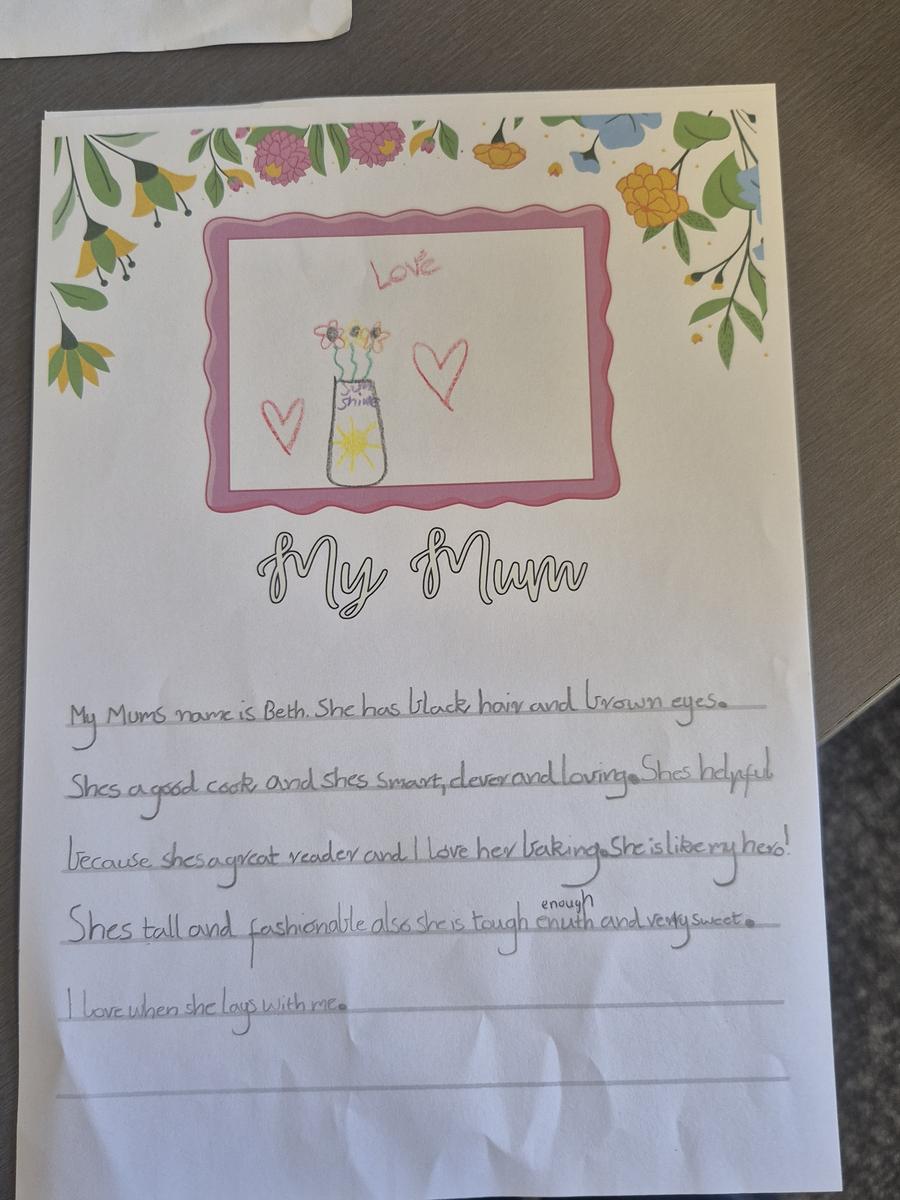 Love
Sun
Shine
My Mum
My Mums name is Beth. She has black hair and brown eyes.
Shes a good cook and shes smart, clever and loving. Shes helpful
because shes a great reader and I love her baking. She is like my hero!
enough
Shes tall and fashionable also she is tough enuth and very sweet.
I love when she lays with me.